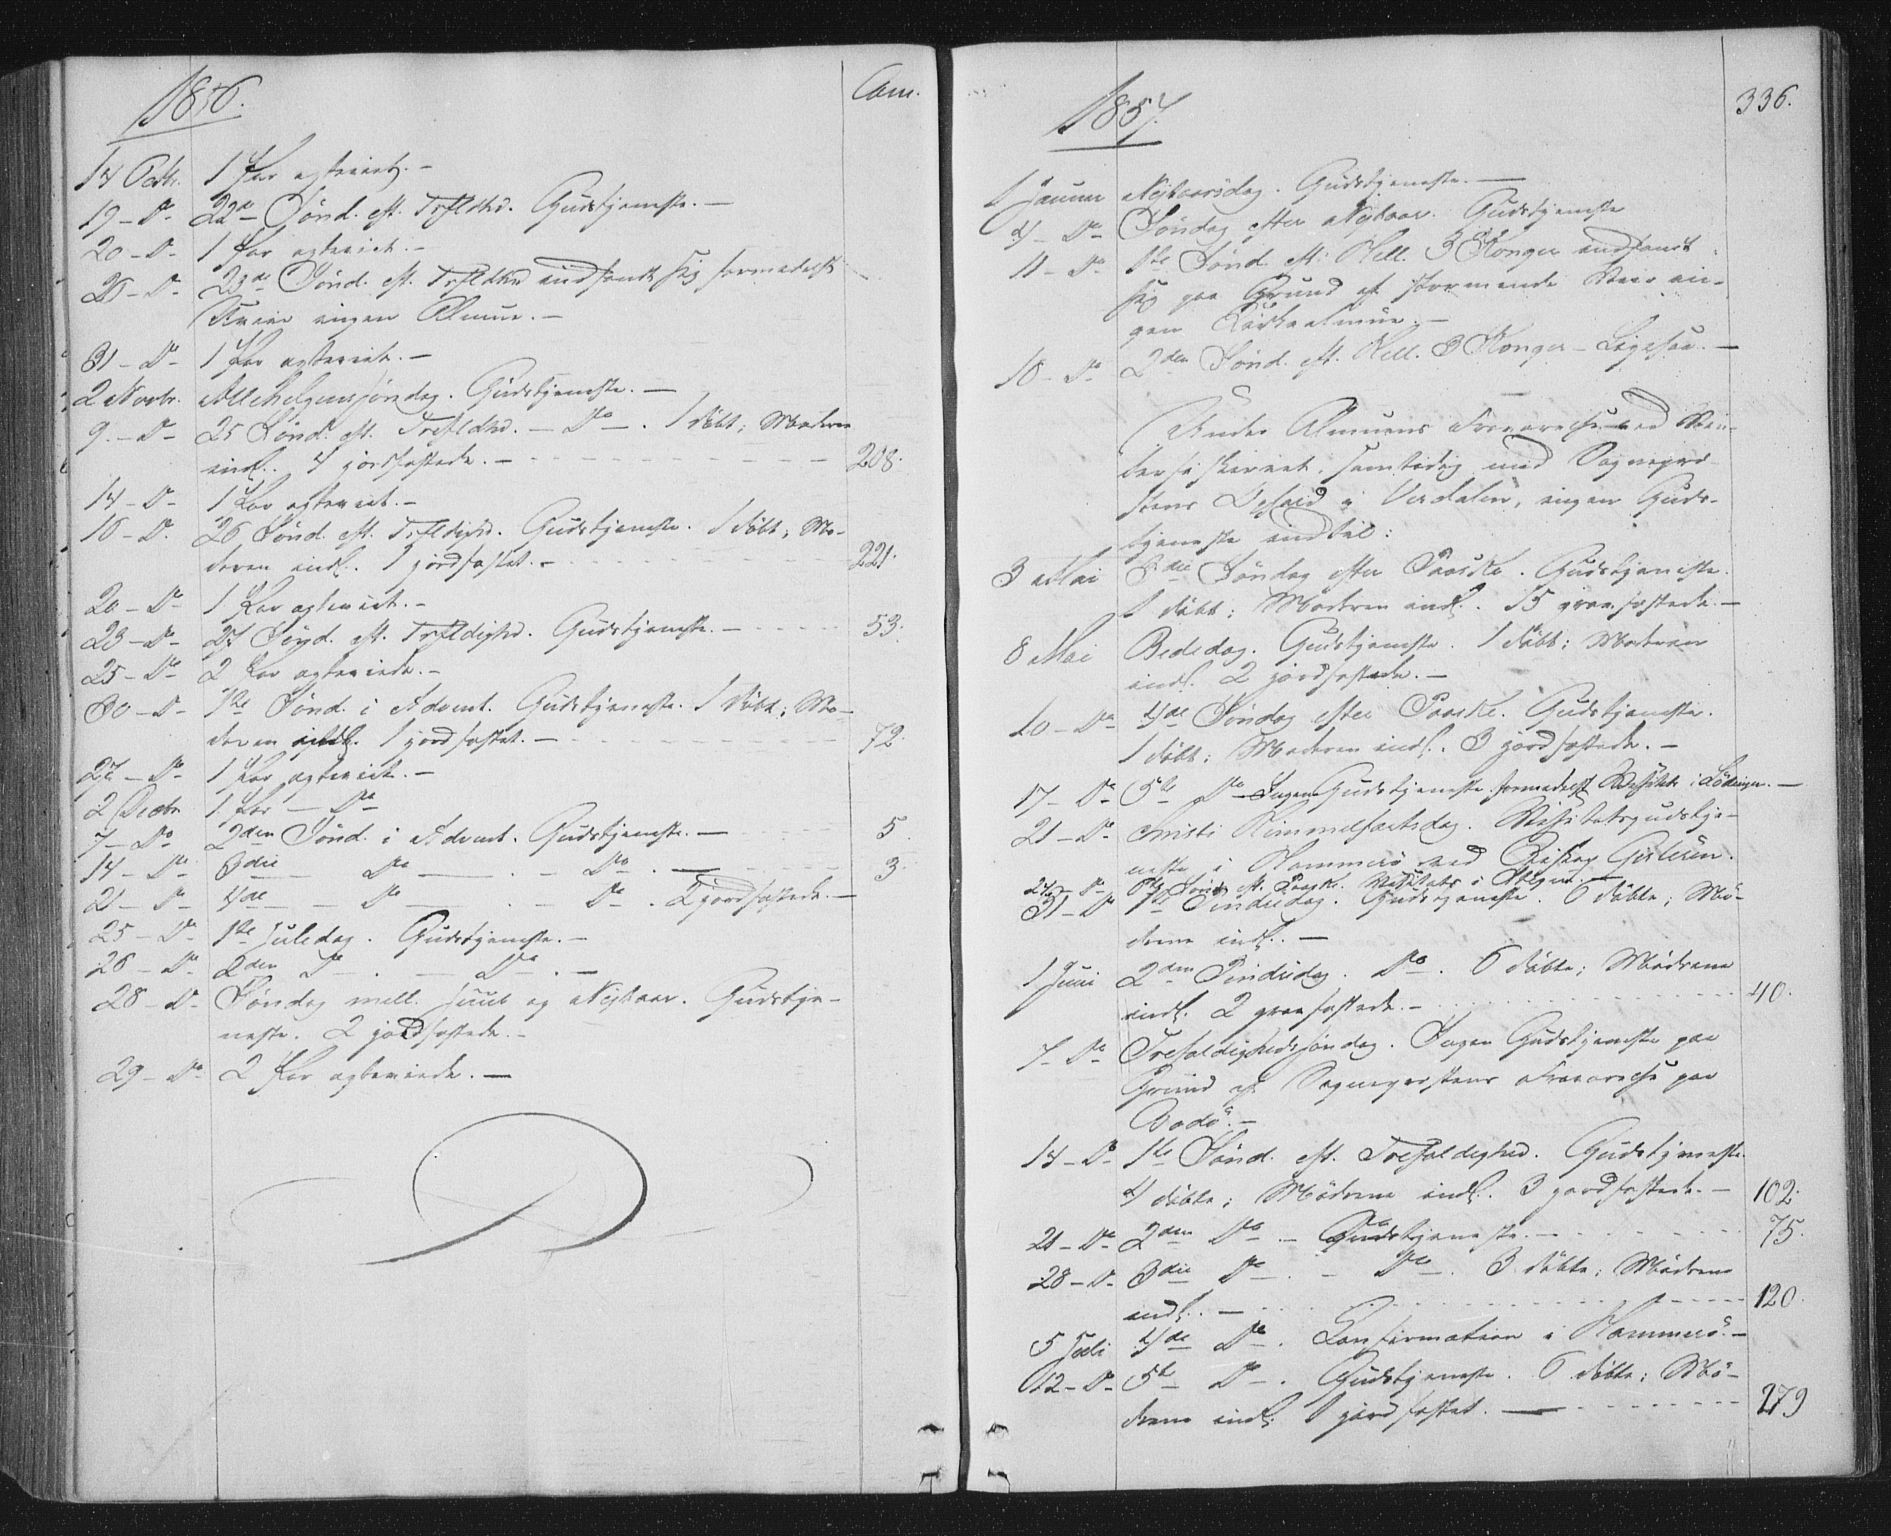 1856.
Com.
14 Octbr. 1 Par egteviet. –
19 – Do – 22de Sönd. eft. Trfldhd. Gudstjeneste. –
20 – Do – 1 Par egteviet. –
26 – Do – 23de Sönd. eft. Trfldhd indfandt sig formedelst
Uveir ingen Almue. –
31 – Do – 1 Par egteviet. –
2 Novbr. Allehelgenssöndag. Gudstjeneste. –
9. – Do – 25 Sönd. eft. Trefldhd. – Do – . 1 döbt; Moderen
indl. 4 jordfæstede. – 208.
14 – Do – 1 Par egteviet. –
16 – Do. 26 Sönd. eft. Trfldighd. Gudstjeneste. 1 döbt; Mo-
deren indl. 1 jordfæstet. – 221.
20 – Do – 1 Par egteviet. –
23 – Do – 27 Sönd. eft. Trfldighd. Gudstjeneste. – 53.
25 – Do – 2 Par egteviede. –
30 – Do – 1ste Sönd. i Advent. Gudstjeneste. 1 döbt; Mo-
deren indl. 1 jordfæstet. – 72.
27 – Do – 1 Par egteviet. –
2 Decbr. 1 Par – Do
7 – Do 2den Sönd. i Advent. Gudstjeneste. – 5.
14 – Do – 3die – Do – . – Do . – 3.
21 – Do – 4de – – Do – . – Do . 2 jordfæstede. –
25 – Do – 1ste Juledag. Gudstjeneste. –
26 – Do – 2den Do – . – Do . –
28 – Do – Söndag mell. Juul og Nytaar. Gudstje-
neste. 2 jordfæstede. –
29 – Do – 2 Par egteviede. –
1857.
336.
1 Januar Nytaarsdag. Gudstjeneste. –
4 – Do – Söndag efter Nytaar. Gudstjeneste
11 – Do – 1ste Sönd. eft. Hell. 3 Konger indfandt
sig paa Grund af stormende Veir in-
gen Kirkealmue. –
18 – Do – 2den Sönd. eft. Hell. 3 Konger – Ligesaa. –
Under Almuens Fraværelse ved Vin-
terfiskeriet, samtidig med Sognepræ-
stens Ophold i Verdalen, ingen Guds-
tjeneste indtil:
3 Mai 3die Söndag efter Paaske. Gudstjeneste.
1 döbt; Moderen indl. 15 gravfæstede. –
8 Mai Bededag. Gudstjeneste. 1 döbt; Moderen
indl. 2 jordfæstede. –
10 – Do – 4de Söndag efter Paaske. Gudstjeneste.
1 döbt; Moderen indl. 3 jordfæstede. –
17 – Do – 5te Do – Ingen Gudstjeneste formedelst Visitats i Lödingen. –
21 – Do – Christi Himmelfartsdag. Visitatsgudstje-
neste i Hammerö ved Biskop Gislesen.
24 – Do – 6te Sönd. eft. Paaske. Visitats i
31 – Do 1ste Pindsedag. Gudstjeneste. 6 döbte; Mö-
drene indl. –
1 Juni 2den Pindsedag. Do . 6 döbte; Mödrene
indl. 2 gravfæstede. – 40.
7 – Do Trefoldighedssöndag. Ingen Gudstjeneste paa
Grund af Sogneprestens Fraværelse paa
Bodö. –
14 – Do – 1ste Sönd. eft. Trefoldighed. Gudstjeneste.
4 döbte; Mödrene indl. 3 jordfæstede. – 102.
21 – Do 2den Do – . – Gudstjeneste. – 75.
28 – Do – 3die Do – . – Do – . 3 döbte; Mödrene
indl. – 120.
5 Juli 4de Do – . Confirmation i Hammerö. –
12 – Do – 5te Do – . Gudstjeneste. 6 döbte; Mö-
drene indl. 1 jordfæstet. – 279